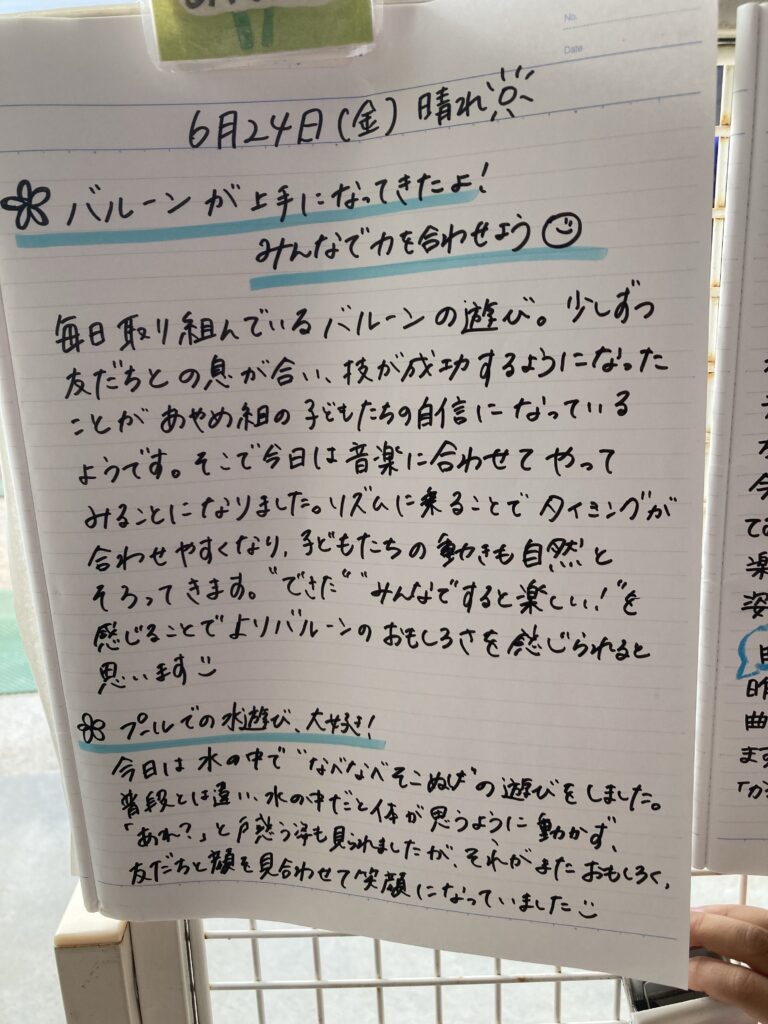 No.
Date
6月24日(金) 晴れ
バルーンが上手になってきたよ!
みんなで力を合わせよう
毎日取り組んでいるバルーンの遊び。少しずつ
友だちとの息が合い、技が成功するようになった
ことがあやめ組の子どもたちの自信になっている
ようです。そこで今日は音楽に合わせてやって
みることになりました。リズムに乗ることでタイミングが
合わせやすくなり、子どもたちの動きも自然と
そろってきます。"できた" "みんなですると楽しい!"を
感じることでよりバルーンのおもしろさを感じられると
思います
プールでの水遊び、大好き!
今日は水の中で"なべなべそこぬけ"の遊びをしました。
普段とは違い、水の中だと体が思うように動かず、
「あれ?」と戸惑う姿も見られましたが、それがまたおもしろく、
友だちと顔を見合わせて笑顔になっていました
今
楽
姿
昨
曲
ます